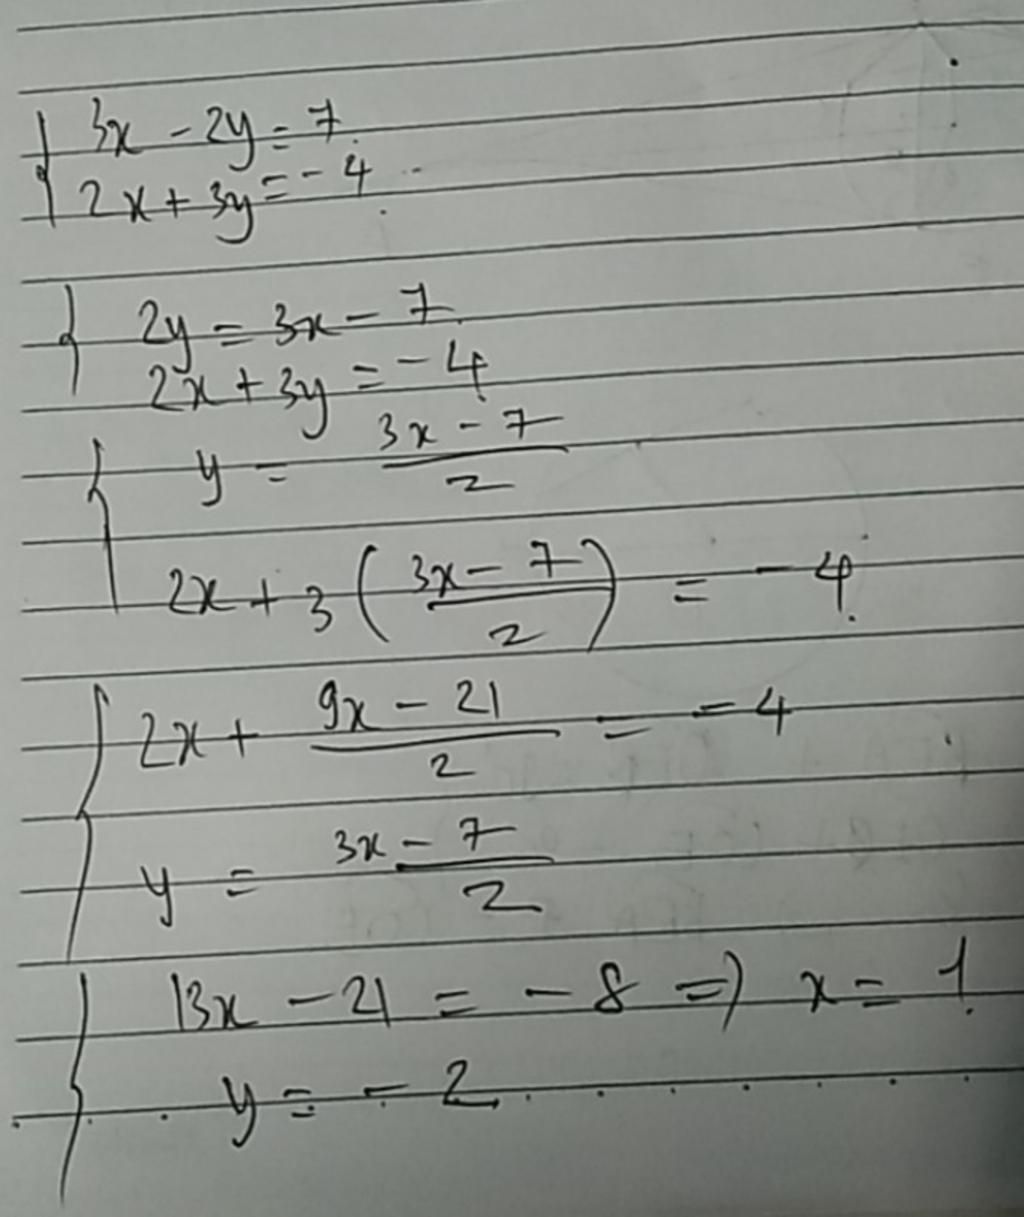 3x - 2y = 7
2x + 3y = - 4
2y = 3x - 7
2x + 3y = - 4
y = \frac{3x - 7}{2}
2x + 3 ( \frac{3x - 7}{2} ) = - 4
2x + \frac{9x - 21}{2} = - 4
y = \frac{3x - 7}{2}
13x - 21 = - 8 => x = 1
y = - 2